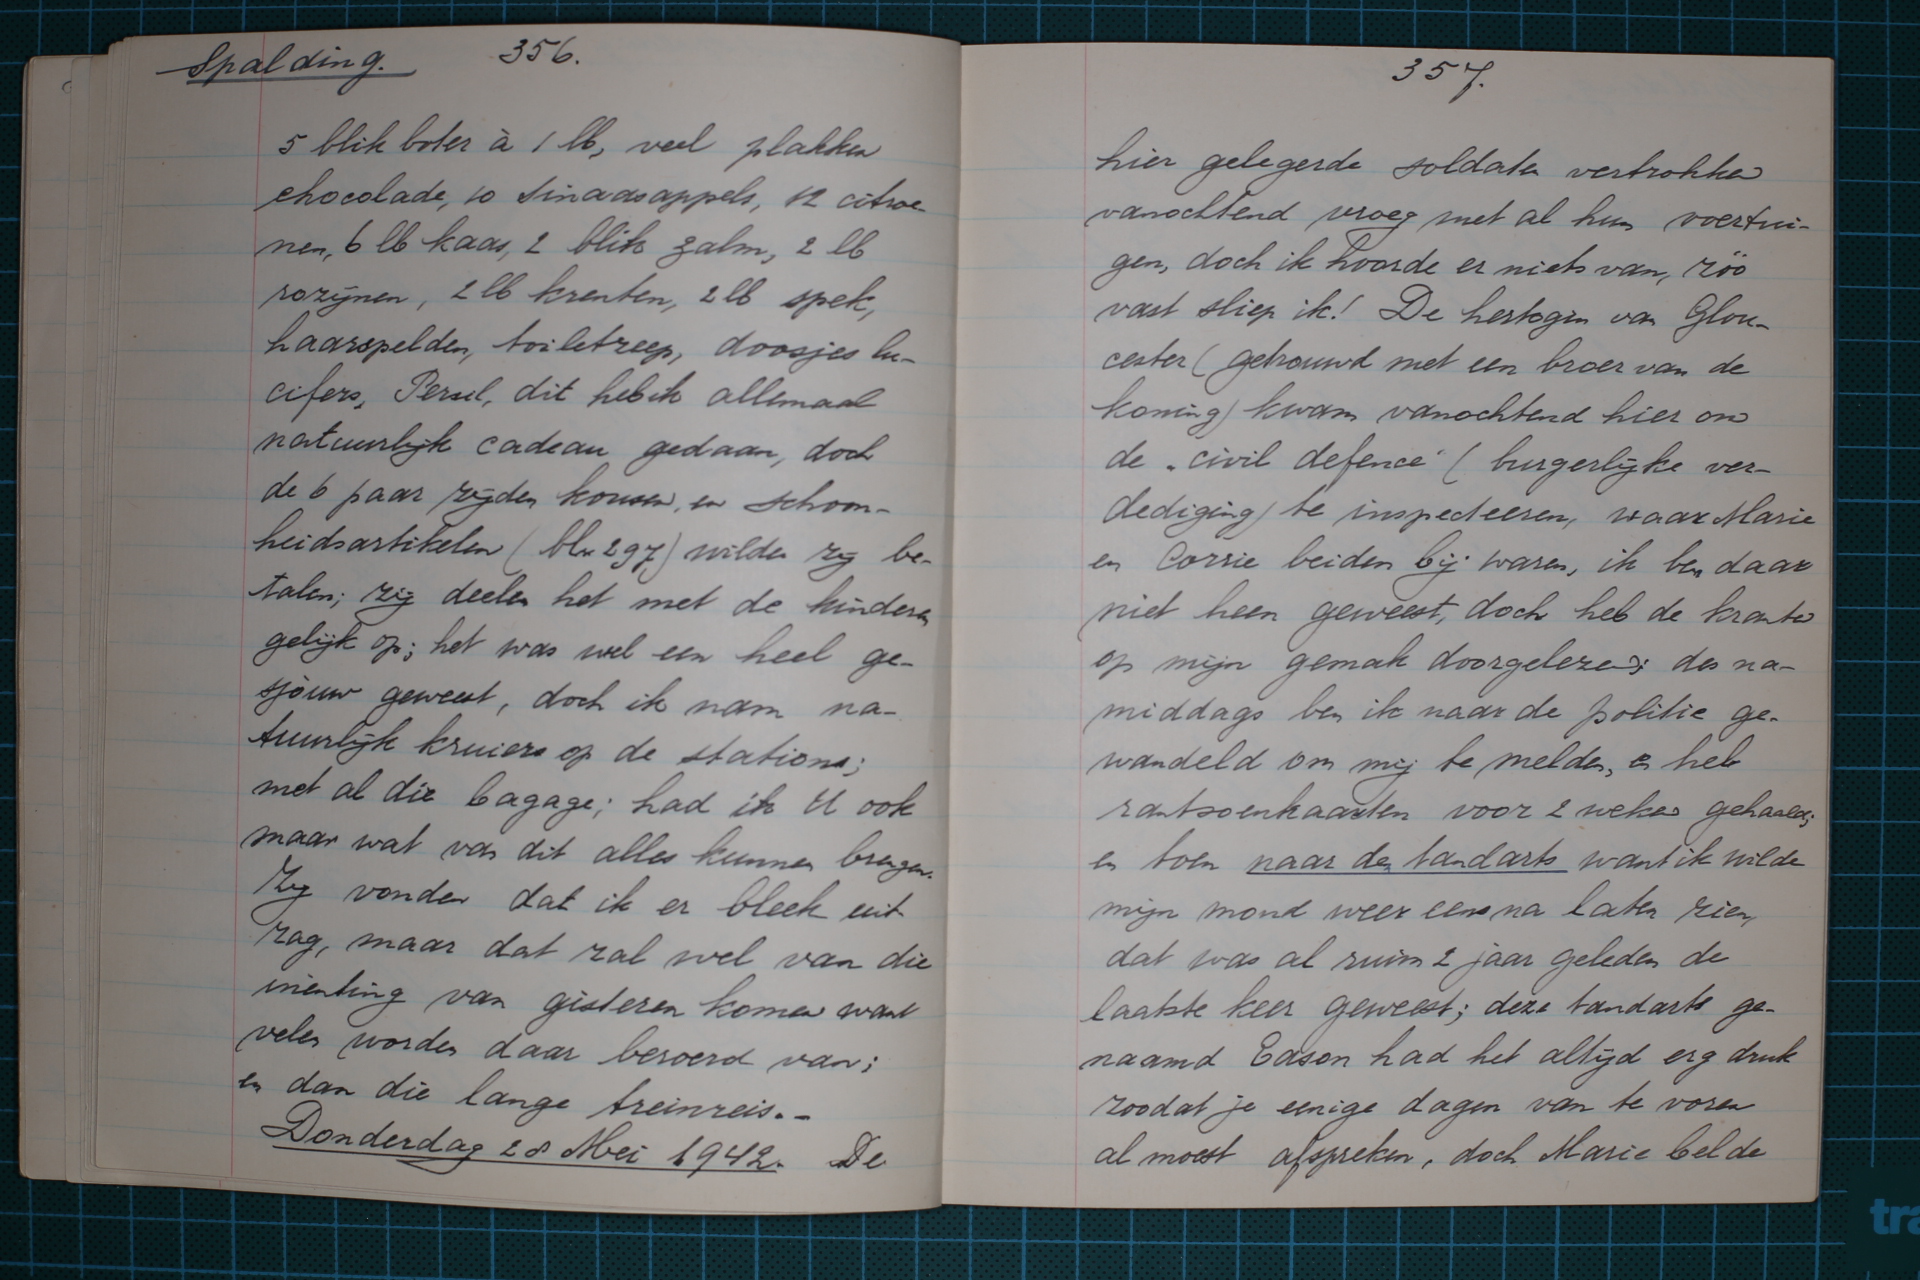 Spalding. 356.
5 blik boter à 1 lb, veel plakken
chocolade, 10 sinaasappels, 12 citroe-
nen, 6 lb kaas, 2 blik zalm, 2 lb
rozijnen, 2 lb krenten, 2 lb spek,
haarspelden, toiletzeep, doosjes lu-
cifers, Persil, dit heb ik allemaal
natuurlijk cadeau gedaan, doch
de 6 paar zijden kousen, en schoon-
heidsartikelen (blz 297) wilden zij be-
talen; zij deelen het met de kinderen
gelijk op; het was wel een heel ge-
sjouw geweest, doch ik nam na-
tuurlijk kruiers op de stations;
met al die bagage; had ik U ook
maar wat van dit alles kunnen brengen.
Zij vonden dat ik er bleek uit
zag, maar dat zal wel van die
inenting van gisteren komen want
velen worden daar beroerd van;
en dan die lange treinreis.-
Donderdag 28 Mei 1942. De
357.
hier gelegerde soldaten vertrokken
vanochtend vroeg met al hun voertui-
gen, doch ik hoorde er niets van, zóó
vast sliep ik! De hertogin van Glou-
cester (getrouwd met een broer van de
koning) kwam vanochtend hier om
de „civil defence" (burgerlijke ver-
dediging) te inspecteeren, waar Marie
en Corrie beiden bij waren, ik ben daar
niet heen geweest, doch heb de kranten
op mijn gemak doorgelezen; des na-
middags ben ik naar de politie ge-
wandeld om mij te melden, en heb
rantsoenkaarten voor 2 weken gehaald;
en toen naar den tandarts want ik wilde
mijn mond weer eens na laten zien,
dat was al ruim 2 jaar geleden de
laatste keer geweest; deze tandarts ge-
naamd Eason had het altijd erg druk
zoodat je eenige dagen van te voren
al moest afspreken, doch Marie belde
tra